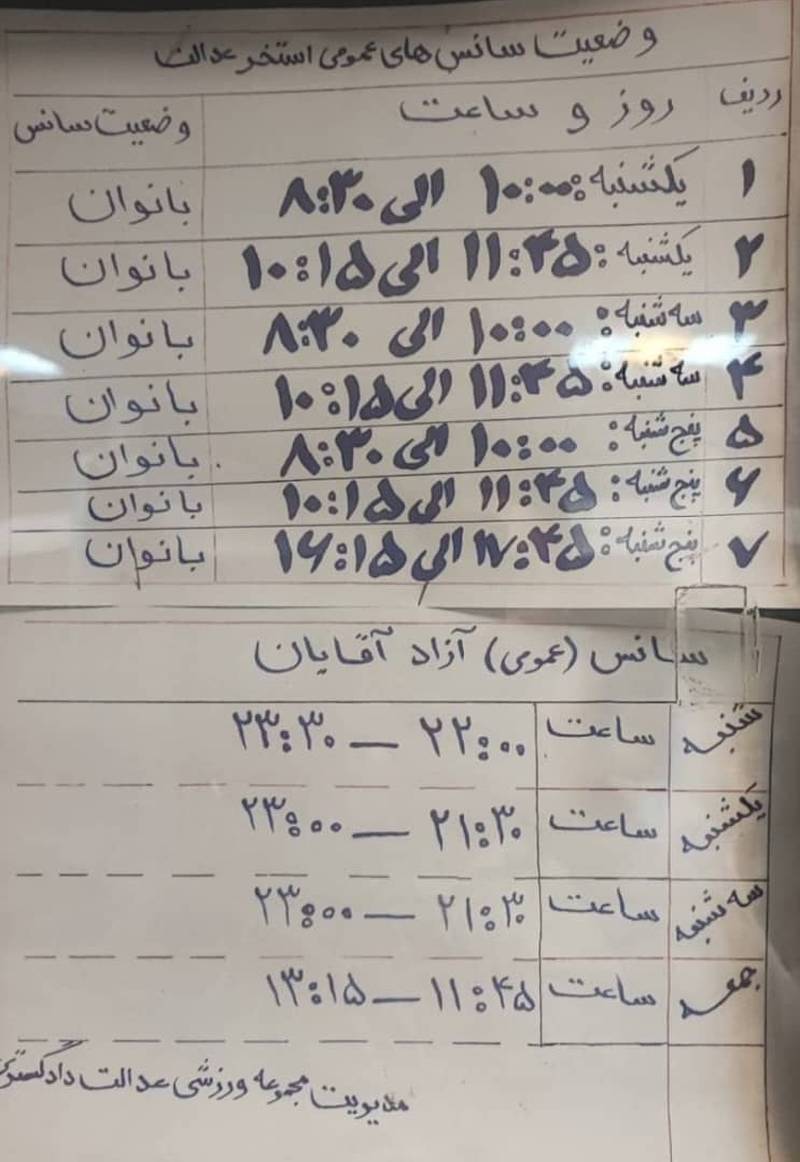 وضعیت سانس های عمومی استخر عدالت
ردیف روز و ساعت وضعیت سانس
۱ یکشنبه: ۱۰:۰۰ الی ۸:۳۰ بانوان
۲ یکشنبه: ۱۱:۴۵ الی ۱۰:۱۵ بانوان
۳ سه شنبه: ۱۰:۰۰ الی ۸:۳۰ بانوان
۴ سه شنبه: ۱۱:۴۵ الی ۱۰:۱۵ بانوان
۵ پنج شنبه: ۱۰:۰۰ الی ۸:۳۰ بانوان
۶ پنج شنبه: ۱۱:۴۵ الی ۱۰:۱۵ بانوان
۷ پنج شنبه: ۱۷:۴۵ الی ۱۶:۱۵ بانوان
سانس (عمومی) آزاد آقایان
شنبه ساعت ۲۲:۰۰ — ۲۳:۳۰
یکشنبه ساعت ۲۱:۳۰ — ۲۳:۰۰
سه شنبه ساعت ۲۱:۳۰ — ۲۳:۰۰
جمعه ساعت ۱۱:۴۵ — ۱۳:۱۵
مدیویت مجموعه ورزشی عدالت دادگستری